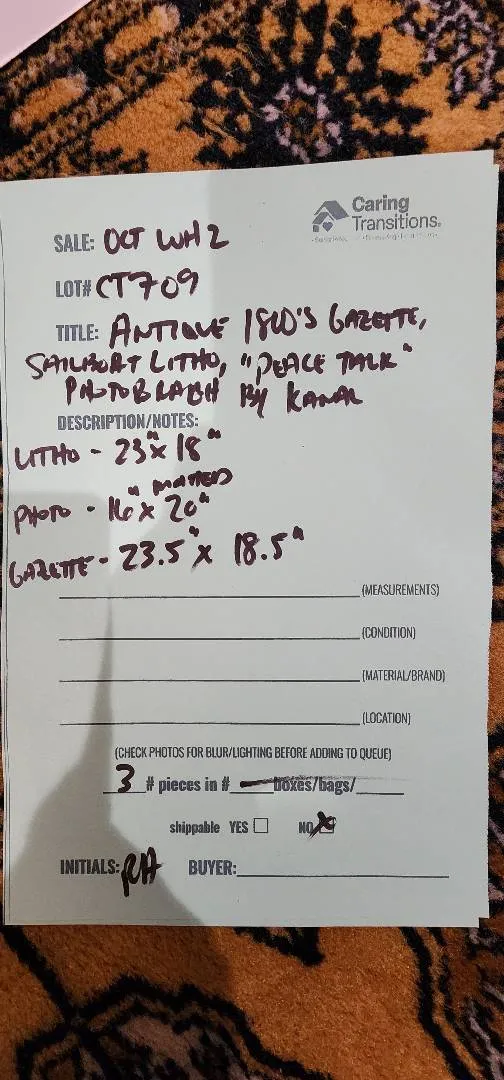 Caring
Transitions®
SALE: OCT WH 2
LOT# CT709
TITLE: ANTIQUE 1800'S GAZETTE,
SAILBOAT LITHO, "PEACE TALK"
PHOTOGRAPH BY KAMAL
DESCRIPTION/NOTES:
LITHO - 23" x 18"
MATTED
PHOTO - 16" x 20"
GAZETTE - 23.5" x 18.5"
(MEASUREMENTS)
(CONDITION)
(MATERIAL/BRAND)
(LOCATION)
(CHECK PHOTOS FOR BLUR/LIGHTING BEFORE ADDING TO QUEUE)
3 # pieces in # boxes/bags/
shippable YES NO X
INITIALS: RH BUYER: